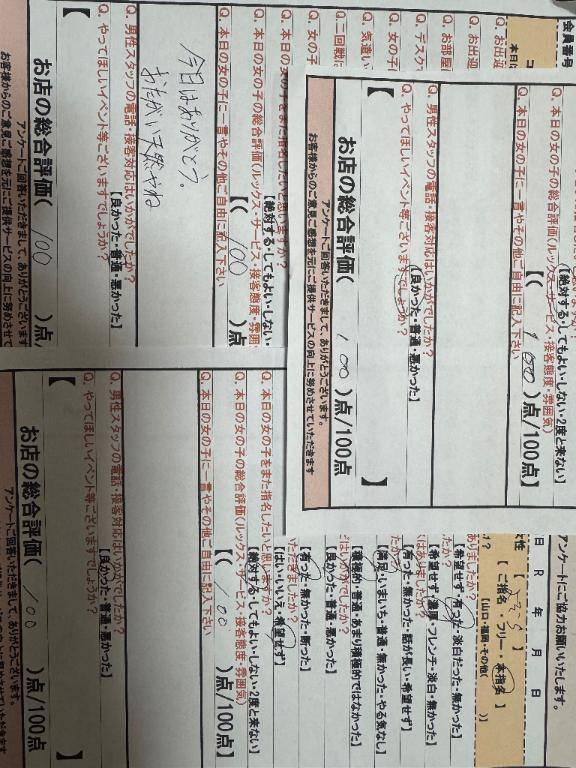 会員番号
Q. お出迎
Q. お部屋
Q. デスク
Q. 女の子
Q. 気遣い
Q. 二回戦に
Q. 女の子
Q. 本日の女の子をまた指名したいと思いますか?
【絶対する・してもよい・しない・
Q. 本日の女の子の総合評価(ルックス・サービス・接客態度・雰囲
【( 100 )点/
Q. 本日の女の子に一言やその他ご自由に記入下さい
今日はありがとう。
おたがい天然やね
Q. 男性スタッフの電話・接客対応はいかがでしたか?
【良かった・普通・悪かった】
Q. やってほしいイベント等ございますでしょうか?
【
お店の総合評価( 100 )点/
アンケートご回答いただきまして、ありがとうございます
お客様からのご意見ご感想を元にご提供サービスの向上に努めさせて
【絶対する・してもよい・しない・2度と来ない】
Q. 本日の女の子の総合評価(ルックス・サービス・接客態度・雰囲気)
【( 100 )点/100点】
Q. 本日の女の子に一言やその他ご自由に記入下さい
Q. 男性スタッフの電話・接客対応はいかがでしたか?
【良かった・普通・悪かった】
Q. やってほしいイベント等ございますでしょうか?
【 】
お店の総合評価( 100 )点/100点
アンケートご回答いただきまして、ありがとうございます。
お客様からのご意見ご感想を元にご提供サービスの向上に努めさせていただきます
アンケートにご協力お願いいたします。
日 R 年 月 日
【 ご指名 ・ フリー ・ 本指名 】
[山口・福岡・その他( )]
ありましたか?
【希望せず・有った・淡白だった・無かった】
【希望せず・濃厚・フレンチ・淡白・無かった】
【有った・無かった・話が長い・希望せず】
【満足・いまいち・普通・無かった・やる気なし】
【積極的・普通・あまり積極的ではなかった】
【良かった・普通・悪かった】
【有った・無かった・断った】
【はい・いいえ・希望せず】
Q. 本日の女の子をまた指名したいと思いますか?
【絶対する・してもよい・しない・2度と来ない】
Q. 本日の女の子の総合評価(ルックス・サービス・接客態度・雰囲気)
【( 100 )点/100点】
Q. 本日の女の子に一言やその他ご自由に記入下さい
Q. 男性スタッフの電話・接客対応はいかがでしたか?
【良かった・普通・悪かった】
Q. やってほしいイベント等ございますでしょうか?
【 】
お店の総合評価( 100 )点/100点
アンケートご回答いただきまして、ありがとうございます。